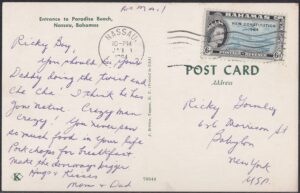 Air Mail
Entrance to Paradise Beach,
Nassau, Bahamas
Ricky Boy,
You should see your
Daddy doing the twist and
Cha Cha. I think he has
gone Native. Crazy man
Crazy! You never saw
so much food in your life
Pork chops for breakfast
Make the doorways bigger
Hugs & Kisses
Mom & Dad
K
NASSAU
10-PM
BAHAMAS
NEW CONSTITUTION
1964
POST CARD
Address
Ricky Gormley
626 Morrison St
Babylon
New York
USA